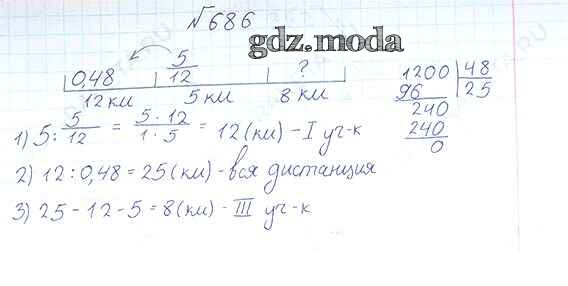 √686
gdz.moda
0,48 5/12 ?
12 км 5 км 8 км
1200 | 48
96 25
240
240
0
1) 5 : 5/12 = 5 · 12 / 1 · 5 = 12 (км) - I уч-к
2) 12 : 0,48 = 25 (км) - вся дистанция
3) 25 - 12 - 5 = 8 (км) - III уч-к